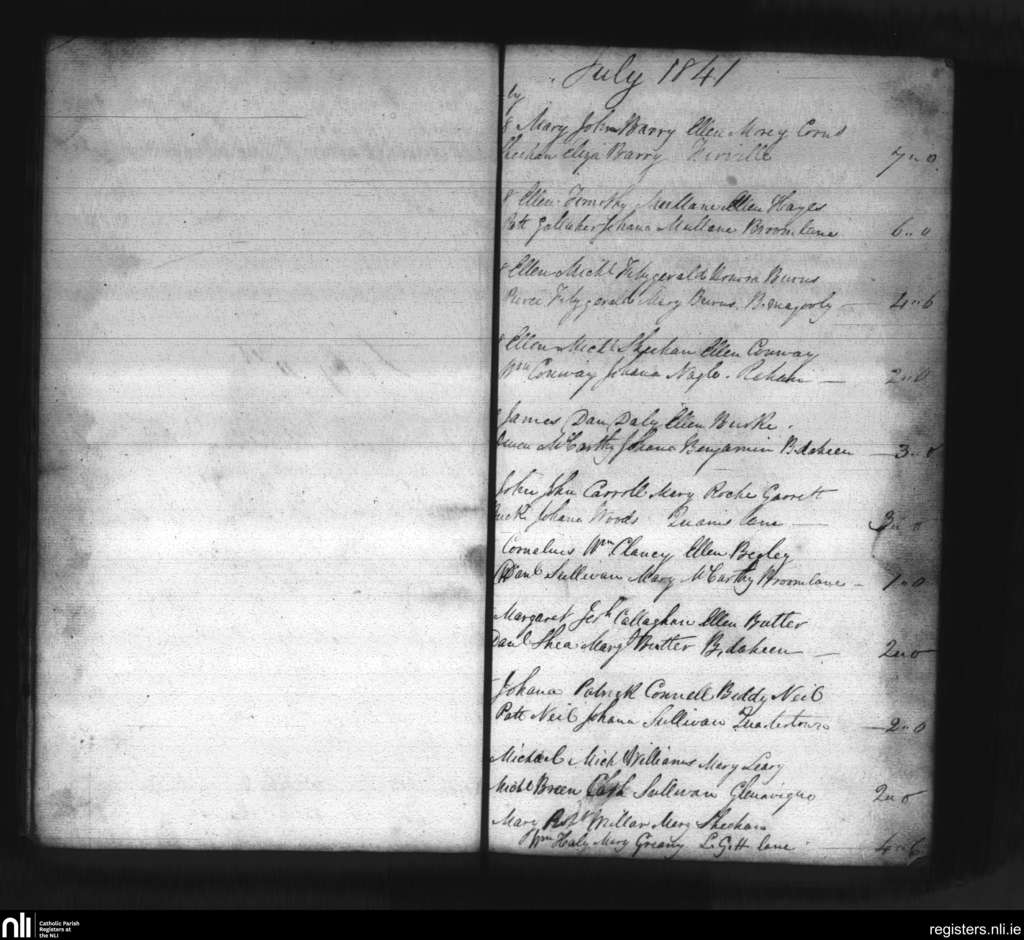 July 1841
8 Mary John Barry Ellen Morey Corns
Sheehan Eliza Barry Firville 7 " 0
8 Ellen Timothy Mullane Ellen Hayes
Patt Johana Mullane Broomlane 6 " 0
8 Ellen Michl Fitzgerald Honora Burns
Pierce Fitzgerald Mary Burns B.magooly 4 " 6
8 Ellen Michl Sheehan Ellen Conway
Wm Conway Johana Nagle 2 " 0
James Dan Daly Ellen Burke
Owen McCarthy Johana Benjamin B.daheen 3 " 0
John John Carroll Mary Roche Garrett
Johana Woods lane 3 " 0
Cornelius Wm Clancy Ellen Begley
Danl Sullivan Mary McCarthy Broomlane 1 " 0
Margaret Jerh Callaghan Ellen Butler
Danl Shea Mary Butler B.daheen 2 " 0
Johana Patrick Connell Biddy Neil
Patt Neil Johana Sullivan Quartertown 2 " 0
Michael Mich Williams Mary Leary
Michl Breen Cath Sullivan 2 " 0
Mary Robt Millar Mary Sheehan
Wm Haly Mary Greany lane 4 " 6
nli
Catholic Parish
Registers at
the NLI
registers.nli.ie